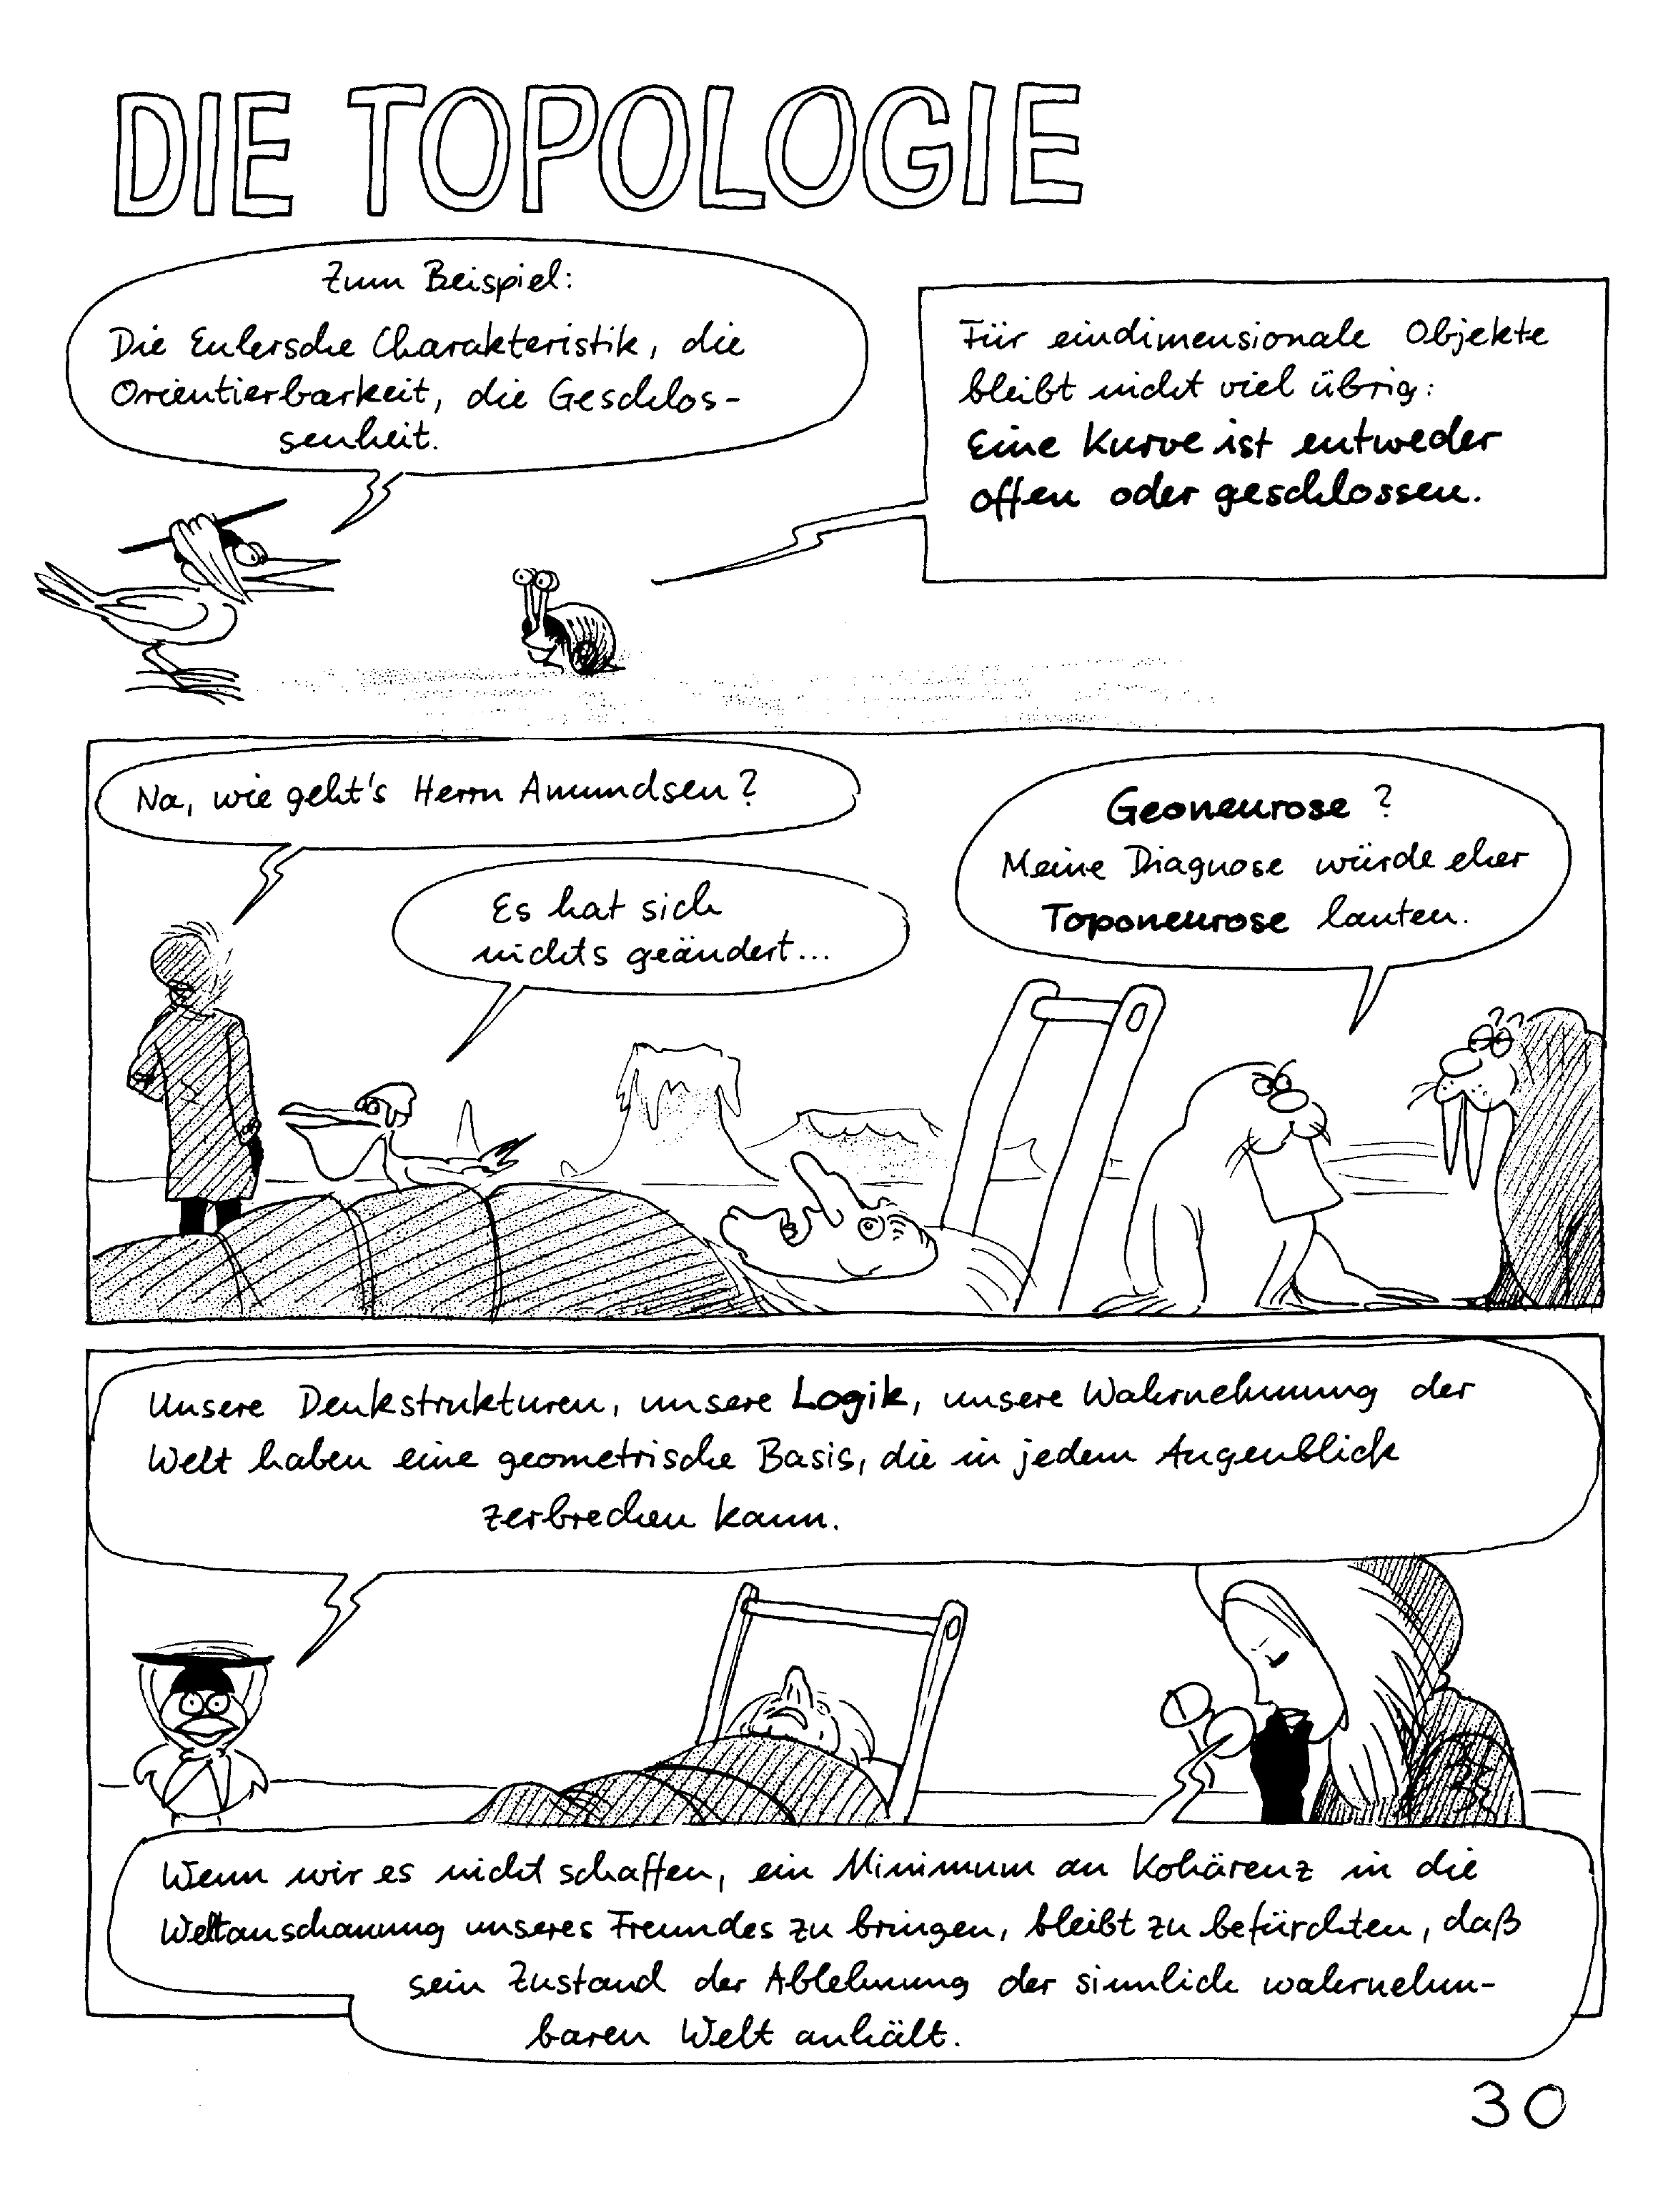 DIE TOPOLOGIE
Zum Beispiel:
Die Eulersche Charakteristik, die
Orientierbarkeit, die Geschlos-
senheit.
Für eindimensionale Objekte
bleibt nicht viel übrig:
Eine Kurve ist entweder
offen oder geschlossen.
Na, wie geht's Herrn Amundsen?
Es hat sich
nichts geändert...
Geoneurose?
Meine Diagnose würde eher
Toponeurose lauten.
Unsere Denkstrukturen, unsere Logik, unsere Wahrnehmung der
Welt haben eine geometrische Basis, die in jedem Augenblick
zerbrechen kann.
Wenn wir es nicht schaffen, ein Minimum an Kohärenz in die
Weltanschauung unseres Freundes zu bringen, bleibt zu befürchten, daß
sein Zustand der Ablehnung der sinnlich wahrnehm-
baren Welt anhält.
30